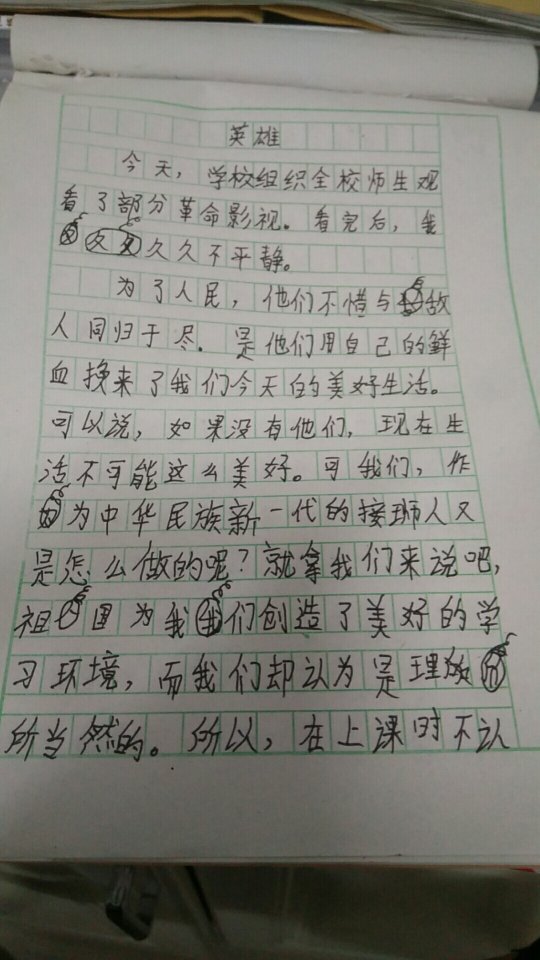 英雄
今天，学校组织全校师生观
看了部分革命影视。看完后，我
久久不平静。
为了人民，他们不惜与敌
人同归于尽．是他们用自己的鲜
血换来了我们今天的美好生活。
可以说，如果没有他们，现在生
活不可能这么美好。可我们，作
为中华民族新一代的接班人又
是怎么做的呢？就拿我们来说吧，
祖国为我们创造了美好的学
习环境，而我们却认为是理
所当然的。所以，在上课时不认